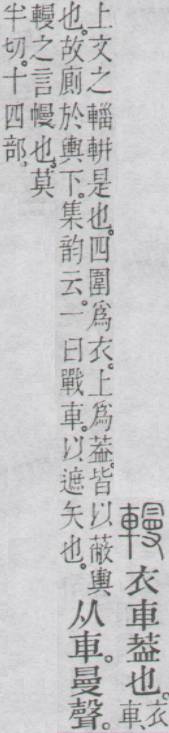 䡬衣車葢也。衣
車、
上文之輜軿是也。四圍爲衣。上爲葢。皆以蔽輿
也。故廁於輿下。集韵云。一曰戰車。以遮矢也。从車。曼聲。
䡬之言幔也。莫
半切。十四部。